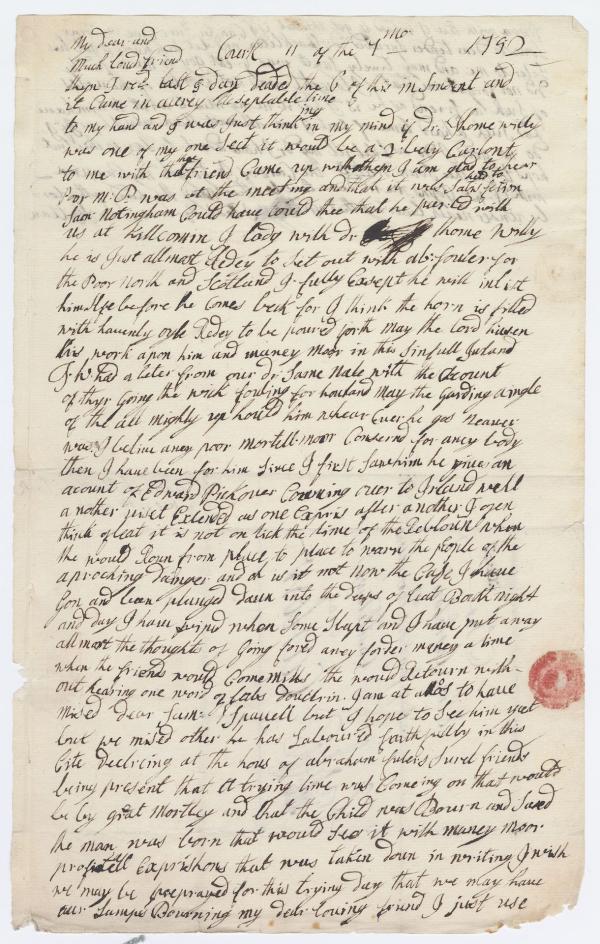 My dear and
Much loud friend Coark 11 of the 4mo 1792
then I recd last 5 day deated the 6 of his instnent and
it Came in a verey exseptable time
to my hand and I was Just thinking in my mind if dr thome willy
was one of my one Sect it would be a
to me with the friend Came up with them I am glad to hear
for M:P. was at the meeting and that it was to
Sam Notingham Could have tould thee that he with
us at Killcomin I tody with dr thome Willy
he is Just allmost Redey to Set out with ab: fouler for
the Poor North and Scotland I fully Except he will inlist
himslfe before he Comes beck for I think the horn is filled
with havenly oyle Redey to be poured forth May the Lord hasen
his work apon him and maney moor in this Sinfull Iseland
J:W. had a leter from our dr Same Nale with the acount
of thyr Going the wick fowing for houland May the Garding angle
of the all mighty up hould him whear Ever he goes neaver
was I belive aney poor mortell moor Conserned for aney body
then I have been for him Since I first Saw him he gives an
acount of Edward Pickover Comming over to Irland well
a nother viset Extended as one Expris after a nother I open
think of leat it is not on lick the time of the Rebloun when
the would Roun from place to place to warn the people of the
aproching dainger and oh is it not now the Case I have
Gon and been plunged daun into the deeps of leat Booth night
and day I have when Some Slept and I have put away
all most the thoughts of Going fored aney forder maney a time
when he friends would Come miles the would Retourn with-
out hearing one word of doucktrin. I am at a los to have
mised dear Sam: Spavell but I hope to See him yet
but we mised other he has Laboured faithfully in this
Cite declreing at the hous of abraham fulers Sevrel friends
being present that a trying time was Comeing on that would
be by great Mortley and that the Child was Bourn and Said
the man was born that would See it with maney moor
profitell Exprishons that was taken down in writing I wish
we may be preprayed for this trying day that we may have
our Lamps Bourning my dear loving friend I just use